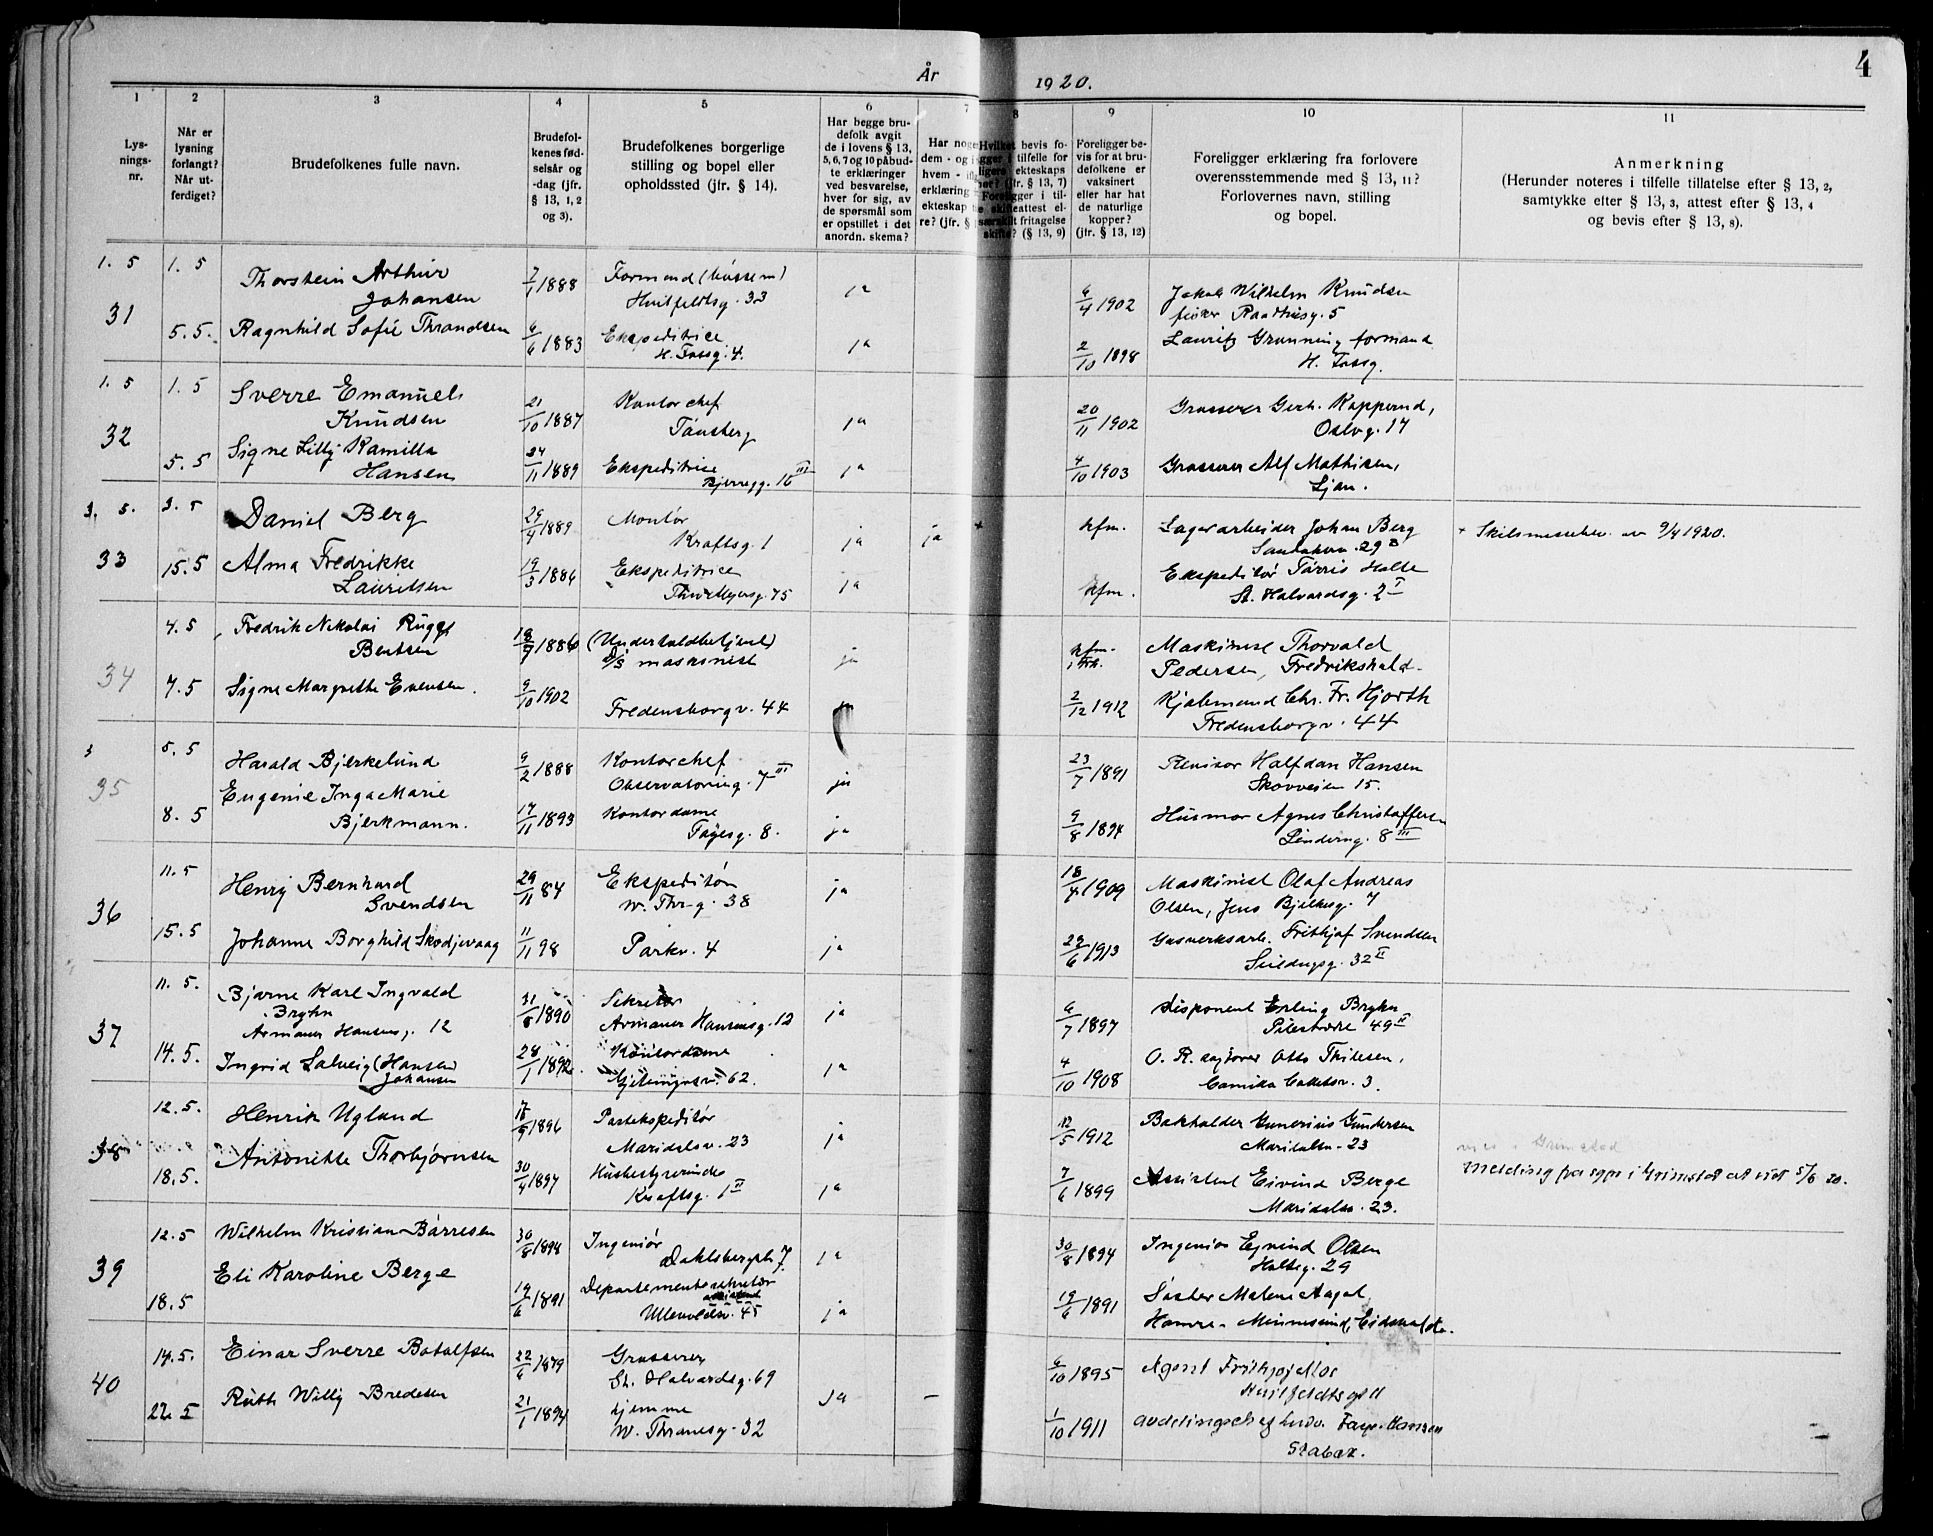 4
År 1920.
1
2
3
4
5
6
7
8
9
10
11
Lys-
nings-
nr.
Når er
lysning
forlangt?
Når ut-
ferdiget?
Brudefolkenes fulle navn.
Brudefol-
kenes fød-
selsår og
-dag (jfr.
§ 13, 1, 2
og 3).
Brudefolkenes borgerlige
stilling og bopel eller
opholdssted (jfr. § 14).
Har begge bru-
defolk avgit
de i lovens § 13,
5, 6, 7 og 10 påbud-
te erklæringer
ved besvarelse,
hver for sig, av
de spørsmål som
er opstillet i det
anordn. skema?
Har noge
dem - og i
hvem - i
erklæring
ekteskap
re? (jfr. §
Hvilket bevis fo-
ligger i tilfelle for
ligere ekteskaps
(jfr. § 13, 7)
Foreligger i til-
skifteattest el-
særskilt fritagelse
skifte? (§ 13, 9)
Foreligger be-
vis for at bru-
defolkene er
vaksinert
eller har hat
de naturlige
kopper?
(jfr. § 13, 12)
Foreligger erklæring fra forlovere
overensstemmende med § 13, 11?
Forlovernes navn, stilling
og bopel.
Anmerkning
(Herunder noteres i tilfelle tillatelse efter § 13, 2,
samtykke efter § 13, 3, attest efter § 13, 4
og bevis efter § 13, 8).
1. 5 1. 5 Thorstein Arthur
Johansen 7/1 1888 Formand
Huitfeldtsg. 33 ja 6/4 1902 Jakob Wilhelm Knudsen
Raadhusg. 5
31 5. 5. Ragnhild Sofie Thrandsen 6/6 1883 Ekspeditrice
H. Fossg. 4. ja 2/10 1898 Lauritz Grønning formand
H. Fossg.
1. 5 1. 5 Sverre Emanuel
Knudsen 21/10 1887 Kontorchef
Tønsberg ja 20/11 1902 Grosserer Gerh. Kopperud,
Oslog. 17
32 5. 5 Signe Lilly Kamilla
Hansen 24/11 1889 Ekspeditrice
Bjerregg. 16 III ja 4/10 1903 Grosserer Alf Mathisen,
Ljan.
3. 5. 3. 5 Daniel Berg 29/4 1889 Montør
Kraftsg. 1 ja ja + kfm. Lagerarbeider Johan Berg
29 B + Skilsmissebev. av 9/4 1920.
33 15. 5 Alma Fredrikke
Lauritsen 19/3 1886 Ekspeditrice
Thv. Meyersg. 75 ja kfm. Ekspeditør Tørris Holte
St. Halvardsg. 2 I
4. 5 Fredrik Nikolai Rugge
Bentsen 18/7 1886 (Undertoldbetjent)
D/S maskinist ja kfm. Maskinist Thorvald
Pedersen, Fredrikshald.
34 7. 5 Signe Margrethe Evensen. 9/10 1902 Fredensborgv. 44 ja 2/12 1912 Kjøbmand Chr. Fr. Hjorth
Fredensborgv. 44
3 5. 5 Harald Bjerkelund 9/2 1888 Kontorchef
Observatorieg. 7 III ja 23/7 1891 Revisor Halfdan Hansen
Skovveien 15.
35 8. 5 Eugenie Inga Marie
Bjerkmann. 17/11 1893 Kontordame
Fayesg. 8. ja 9/8 1894 Husmor Agnes Christoffersen
Linderng. 8 III
11. 5 Henry Bernhard
Svendsen 29/11 84 Ekspeditør
W. Thr-g. 38 ja 18/4 1909 Maskinist Olaf Andreas
Olsen, Jens Bjelkesg. 7
36 15. 5 Johanne Borghild Skodjevaag 11/11 98 Parkv. 4 ja 29/6 1913 Gasverksarb. Frithjof Svendsen
Seildugsg. 32 II
11. 5. Bjarne Karl Ingvald
Bryhn
Armauer Hansensg. 12 31/8 1890 Sekretær
Armauer Hansensg. 12 ja 6/7 1897 Disponent Erling Bryhn
Pilestræde 49 II
37 14. 5. Ingrid Solveig (Hansen)
Johansen 28/1 1892. Kontordame
62. ja 4/10 1908 O. R. sagfører Otto Thilesen,
Camilla Colletsv. 3.
12. 5. Henrik Ugland 18/9 1896 Postekspeditør
Maridalsv. 23 ja 12/5 1912 Bokholder Gunerius Gundersen
Maridalsv. 23
38 18. 5. Antonitte Thorbjørnsen 30/4 1897 Husbestyrerinde
Kraftsg. 1 II ja 7/6 1899 Assistent Eivind Berge
Maridalsv. 23.
vies i Grimstad
Melding fra sgpr i Grimstad at viet 5/6 20.
12. 5 Wilhelm Kristian Børresen 30/8 1894 Ingeniør
Dahlsbergst. 7. ja 30/8 1894 Ingeniør Eyvind Olsen
Holteg. 29
39 18. 5 Eli Karoline Berge 19/6 1891 Departementssekretær
Ullevoldsv. 45 ja 19/6 1891 Søster Malene Aagot
Hamre - Minnesund, Eidsvold.
14. 5. Einar Sverre Botolfsen 22/6 1879 Grosserer
St. Halvardsg. 69 6/10 1895 Agent
Huitfeldtsg 11
40 22. 5 Ruth Willy Bredesen 21/1 1894 hjemme
W. Thranesg. 32 ja - 1/10 1911 avdelingschef Ludv. Hansen
Stabæk.